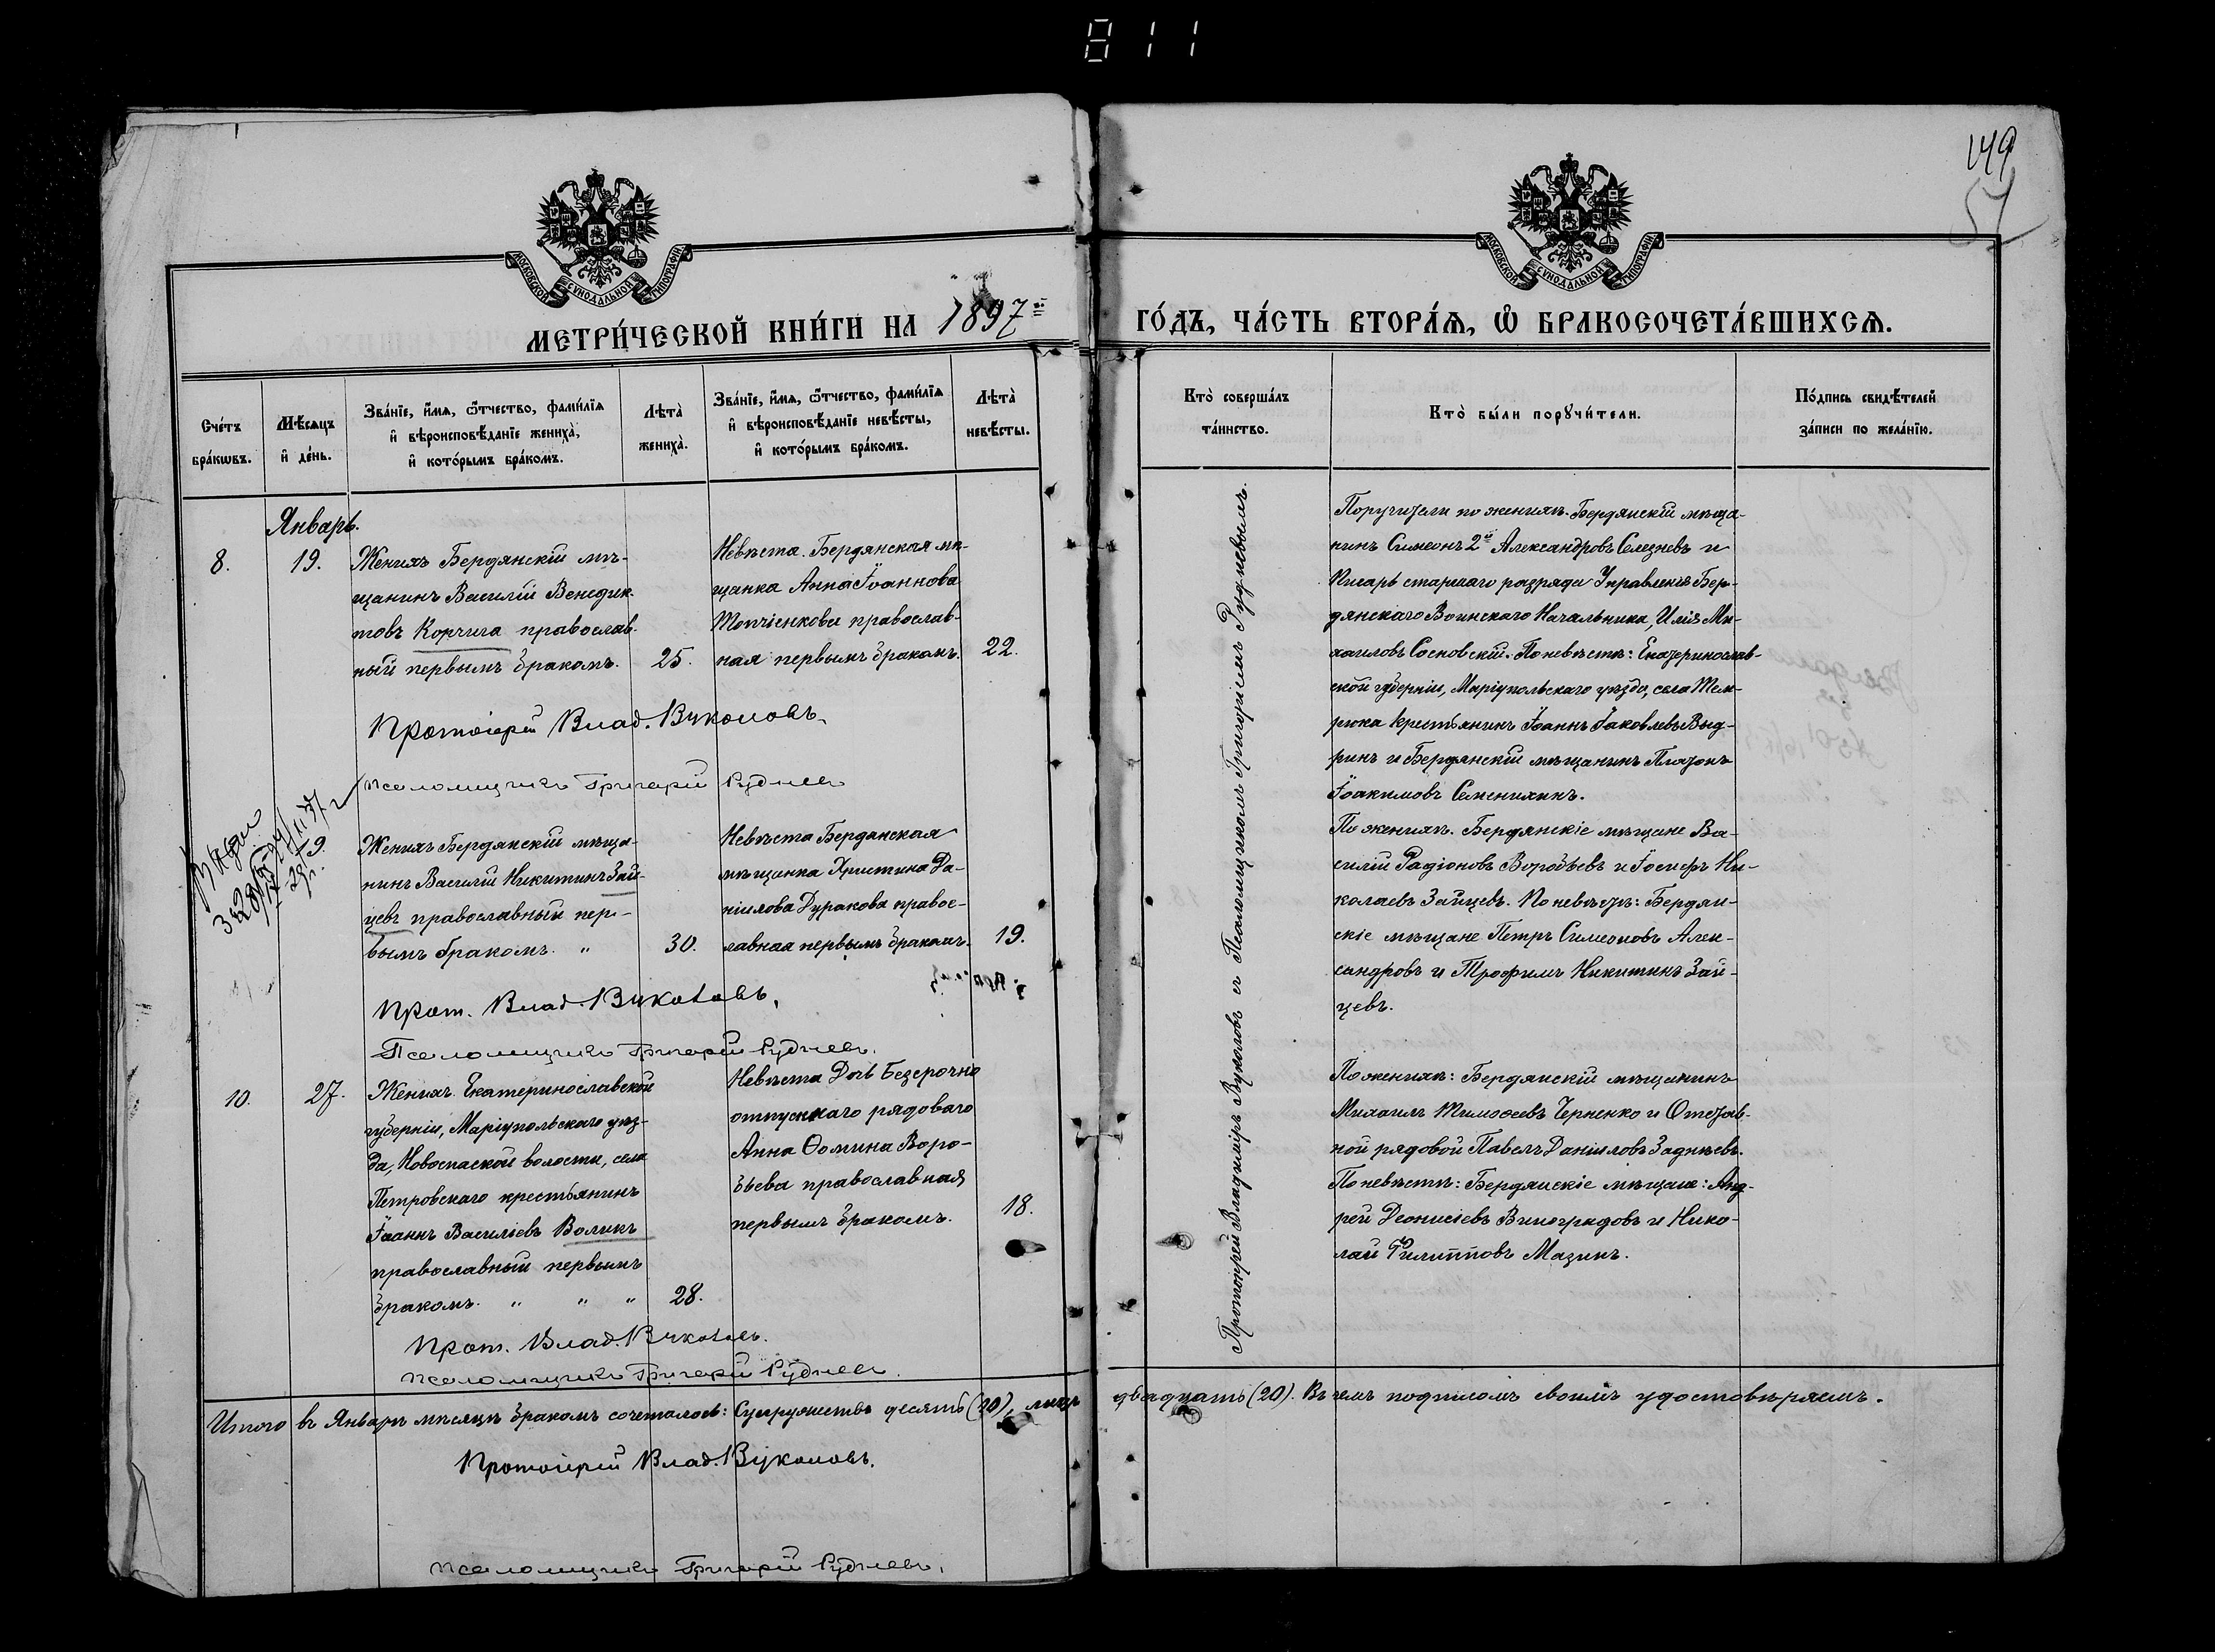 811
149
54
МОСКОВСКОЙ СУНОДАЛЬНОЙ ТИПОГРАФІИ
МОСКОВСКОЙ СУНОДАЛЬНОЙ ТИПОГРАФІИ
МЕТРИ́ЧЕСКОЙ КНИ́ГИ НА 1897й ГО́ДЪ, ЧА́СТЬ ВТОРА́Ѧ, Ѽ БРАКОСОЧЕТА́ВШИХСѦ.
Сче́тъ
бра́кѡвъ.
Мѣ́сѧцъ
и҆ де́нь.
Зва́нїе, и҆́мѧ, ѻ҆́тчество, фами́лїѧ
и҆ вѣроисповѣ́данїе жениха̀,
и҆ кото́рымъ бра́комъ.
Лѣта̀
жениха̀.
Зва́нїе, и҆́мѧ, ѻ҆́тчество, фами́лїѧ
и҆ вѣроисповѣ́данїе невѣ́сты,
и҆ кото́рымъ бра́комъ.
Лѣта̀
невѣ́сты.
Кто̀ соверша́лъ
та́инство.
Кто̀ бы́ли порꙋчи́тели.
По́дпись свидѣ́телей
за́писи по жела́нїю.
Январь.
8.
19.
Женихъ Бердянскій мѣ-
щанинъ Василій Венедик-
товъ Корчига православ-
ный первымъ бракомъ.
25.
Невѣста. Бердянская мѣ-
щанка Анна Іоаннова
Топчіенкова православ-
ная первымъ бракомъ.
22.
Протоіерей Влад. Вуколовъ.
Псаломщикъ Григорій Рудневъ
Протоіерей Владиміръ Вуколовъ съ Псаломщикомъ Григоріемъ Рудневымъ.
Поручители по женихѣ. Бердянскій мѣща-
нинъ Симеонъ 2й Александровъ Селезневъ и
Писарь старшаго разряда Управленія Бер-
дянскаго Воинскаго Начальника, Илія Ми-
хаиловъ Сосновскій. По невѣстѣ: Екатеринослав-
ской губерніи, Маріупольскаго уѣзда, села Тем-
рюка крестьянинъ Іоаннъ Іаковлевъ Выд-
ринъ и Бердянскій мѣщанинъ Платонъ
Іоакимовъ Семенихинъ.
9.
Женихъ Бердянскій мѣща-
нинъ Василій Никитинъ Зай-
цевъ православный пер-
вымъ бракомъ. "
30.
Невѣста Бердянская
мѣщанка Христина Да-
ніилова Дуракова правос-
лавная первымъ бракомъ.
19.
Прот. Влад. Вуколовъ.
Псаломщикъ Григорій Рудневъ.
По женихѣ. Бердянскіе мѣщане Ва-
силій Радіоновъ Воробьевъ и Іосифъ Ни-
колаевъ Зайцевъ. По невѣстѣ: Бердян-
скіе мѣщане Петръ Симеоновъ Алек-
сандровъ и Трофимъ Никитинъ Зай-
цевъ.
10.
27.
Женихъ Екатеринославской
губерніи, Маріупольскаго уѣз-
да, Новоспаской волости, села
Петровскаго крестьянинъ
Іоаннъ Василіевъ Воликъ
православный первымъ
бракомъ. " " "
28.
Невѣста Дочь Безсрочно
отпускнаго рядоваго
Анна Ѳомина Воро-
бьева православная
первымъ бракомъ.
18.
Прот. Влад. Вуколовъ.
Псаломщикъ Григорій Рудневъ.
По женихѣ: Бердянскій мѣщанинъ
Михаилъ Тимоѳеевъ Черненко и Отстав-
ной рядовой Павелъ Даніиловъ Заднѣевъ.
По невѣстѣ: Бердянскіе мѣщане: Анд-
рей Діонисіевъ Виноградовъ и Нико-
лай Филипповъ Мазинъ.
Итого въ Январѣ мѣсяцѣ бракомъ сочеталось: Супружествъ десять (10), лицъ двадцать (20). Въ чемъ подписомъ своимъ удостовѣряемъ.
Протоіерей Влад. Вуколовъ.
Псаломщикъ Григорій Рудневъ.